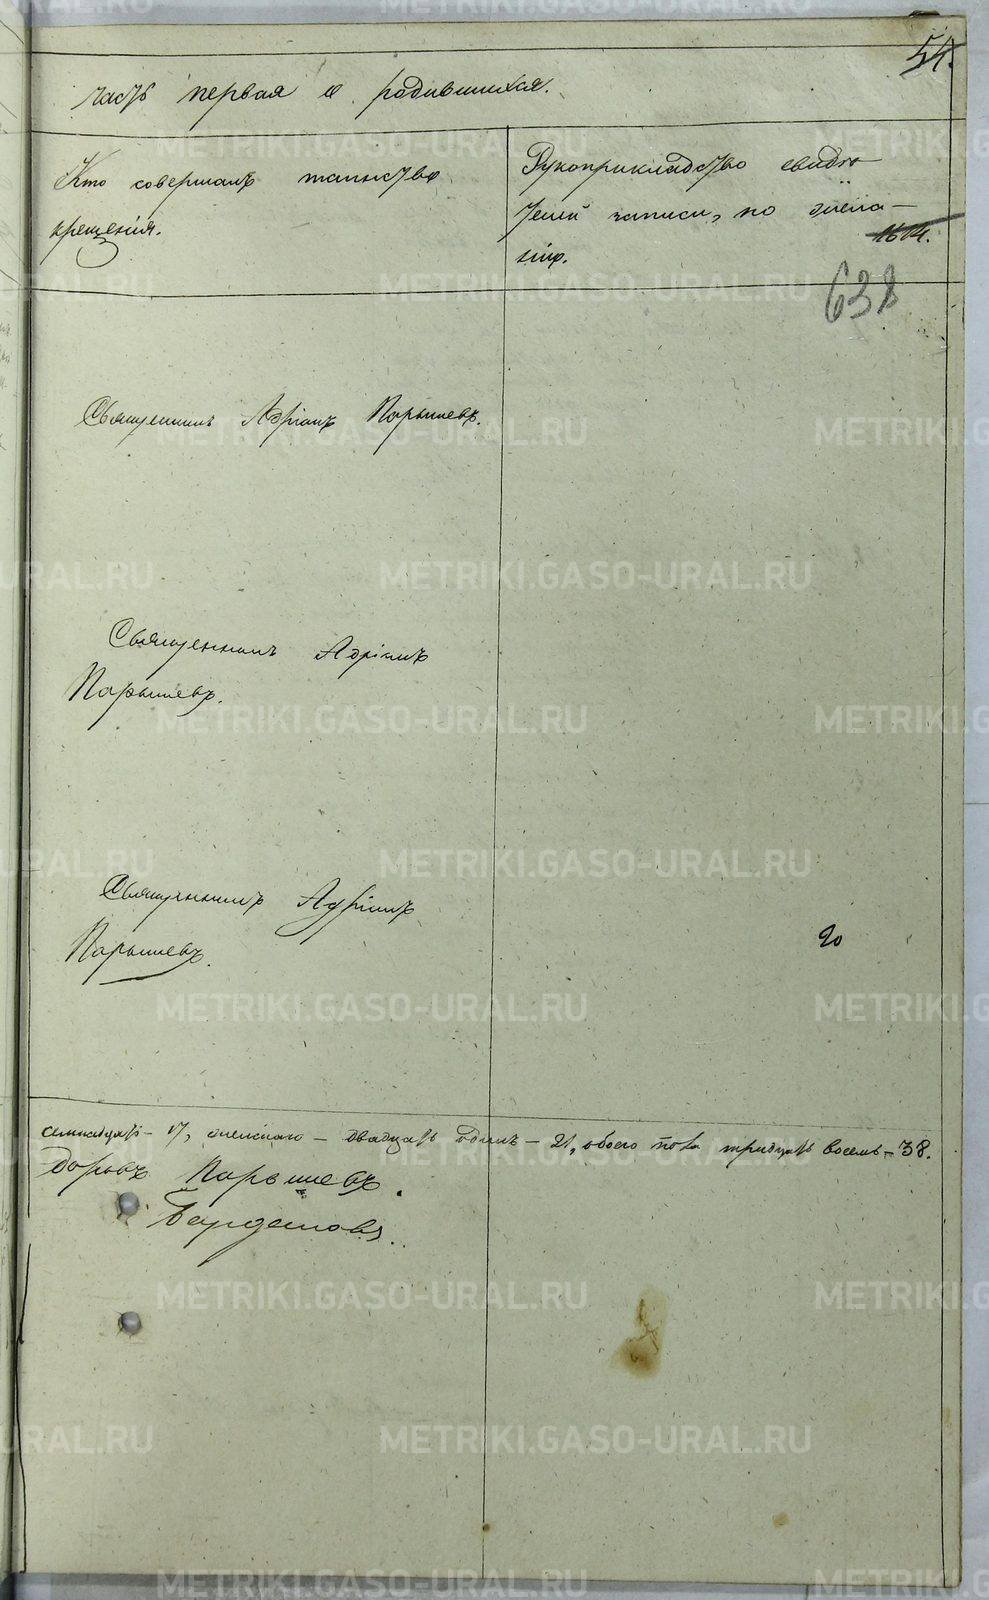 54.
часть первая о родившихся.
Кто совершалъ таинство
крещенія.
Рукоприкладство свидѣ
телей записи, по жела-
нію.
1604.
638
Священникъ Адріанъ Парышевъ.
Священникъ Адріанъ
Парышевъ.
Священникъ Адріанъ
Парышевъ.
20
семнадцать - 17, женскаго - двадцать одинъ - 21, обоего пола тридцать восемь - 38.
Парышевъ.
METRIKI.GASO-URAL.RU